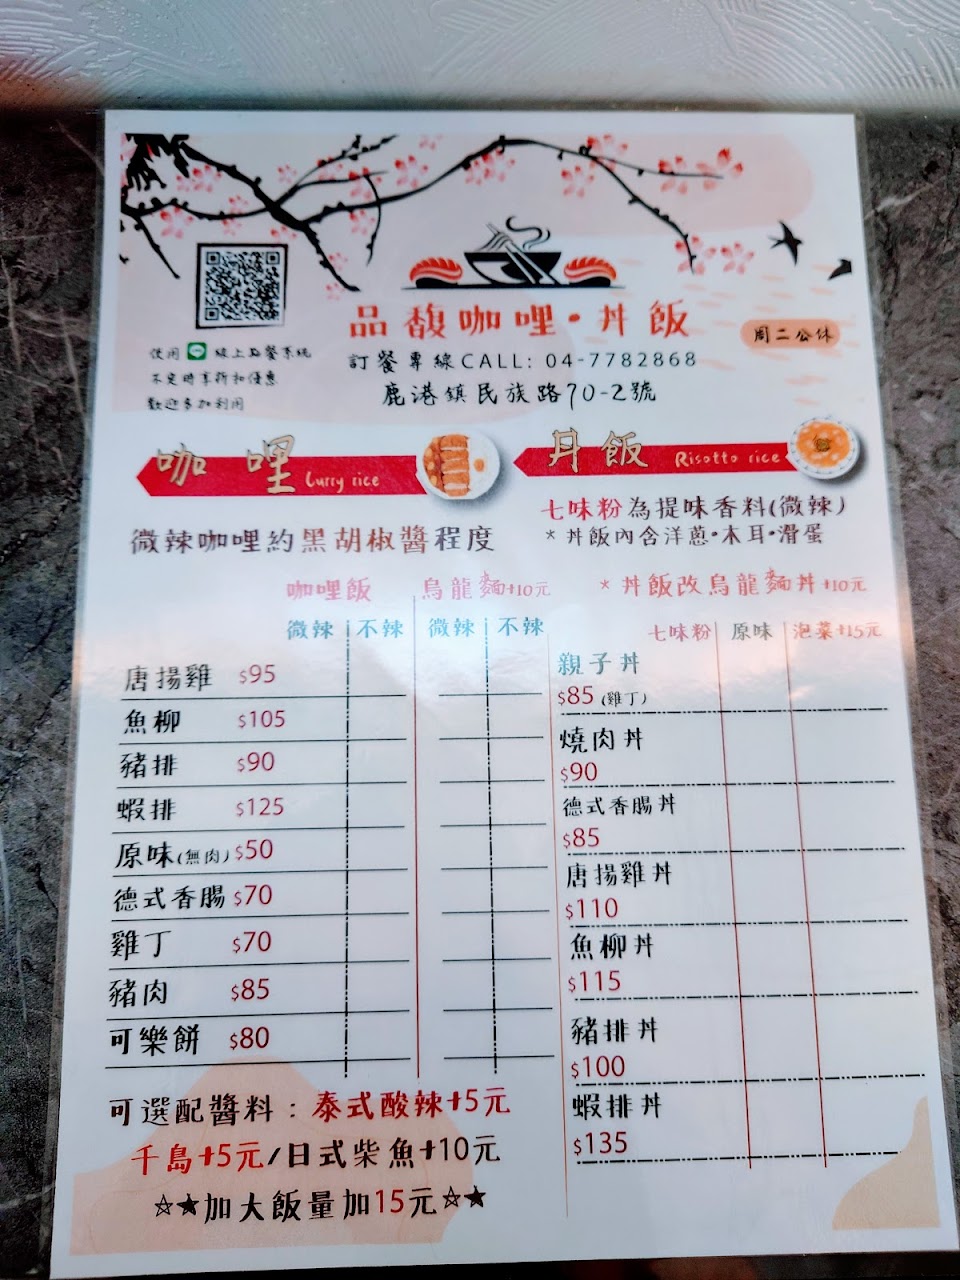 品馥咖哩•丼飯
周二公休
使用 線上點餐系統
不定時享折扣優惠
歡迎多加利用
訂餐專線CALL: 04-7782868
鹿港鎮民族路70-2號
咖哩 Curry rice
微辣咖哩約黑胡椒醬程度
咖哩飯 烏龍麵+10元
微辣 不辣 微辣 不辣
唐揚雞 $95
魚柳 $105
豬排 $90
蝦排 $125
原味(無肉) $50
德式香腸 $70
雞丁 $70
豬肉 $85
可樂餅 $80
可選配醬料：泰式酸辣+5元
千島+5元/日式柴魚+10元
☆★加大飯量加15元☆★
丼飯 Risotto rice
七味粉為提味香料(微辣)
*丼飯內含洋蔥•木耳•滑蛋
*丼飯改烏龍麵丼+10元
七味粉 原味 泡菜+15元
親子丼
$85 (雞丁)
燒肉丼
$90
德式香腸丼
$85
唐揚雞丼
$110
魚柳丼
$115
豬排丼
$100
蝦排丼
$135